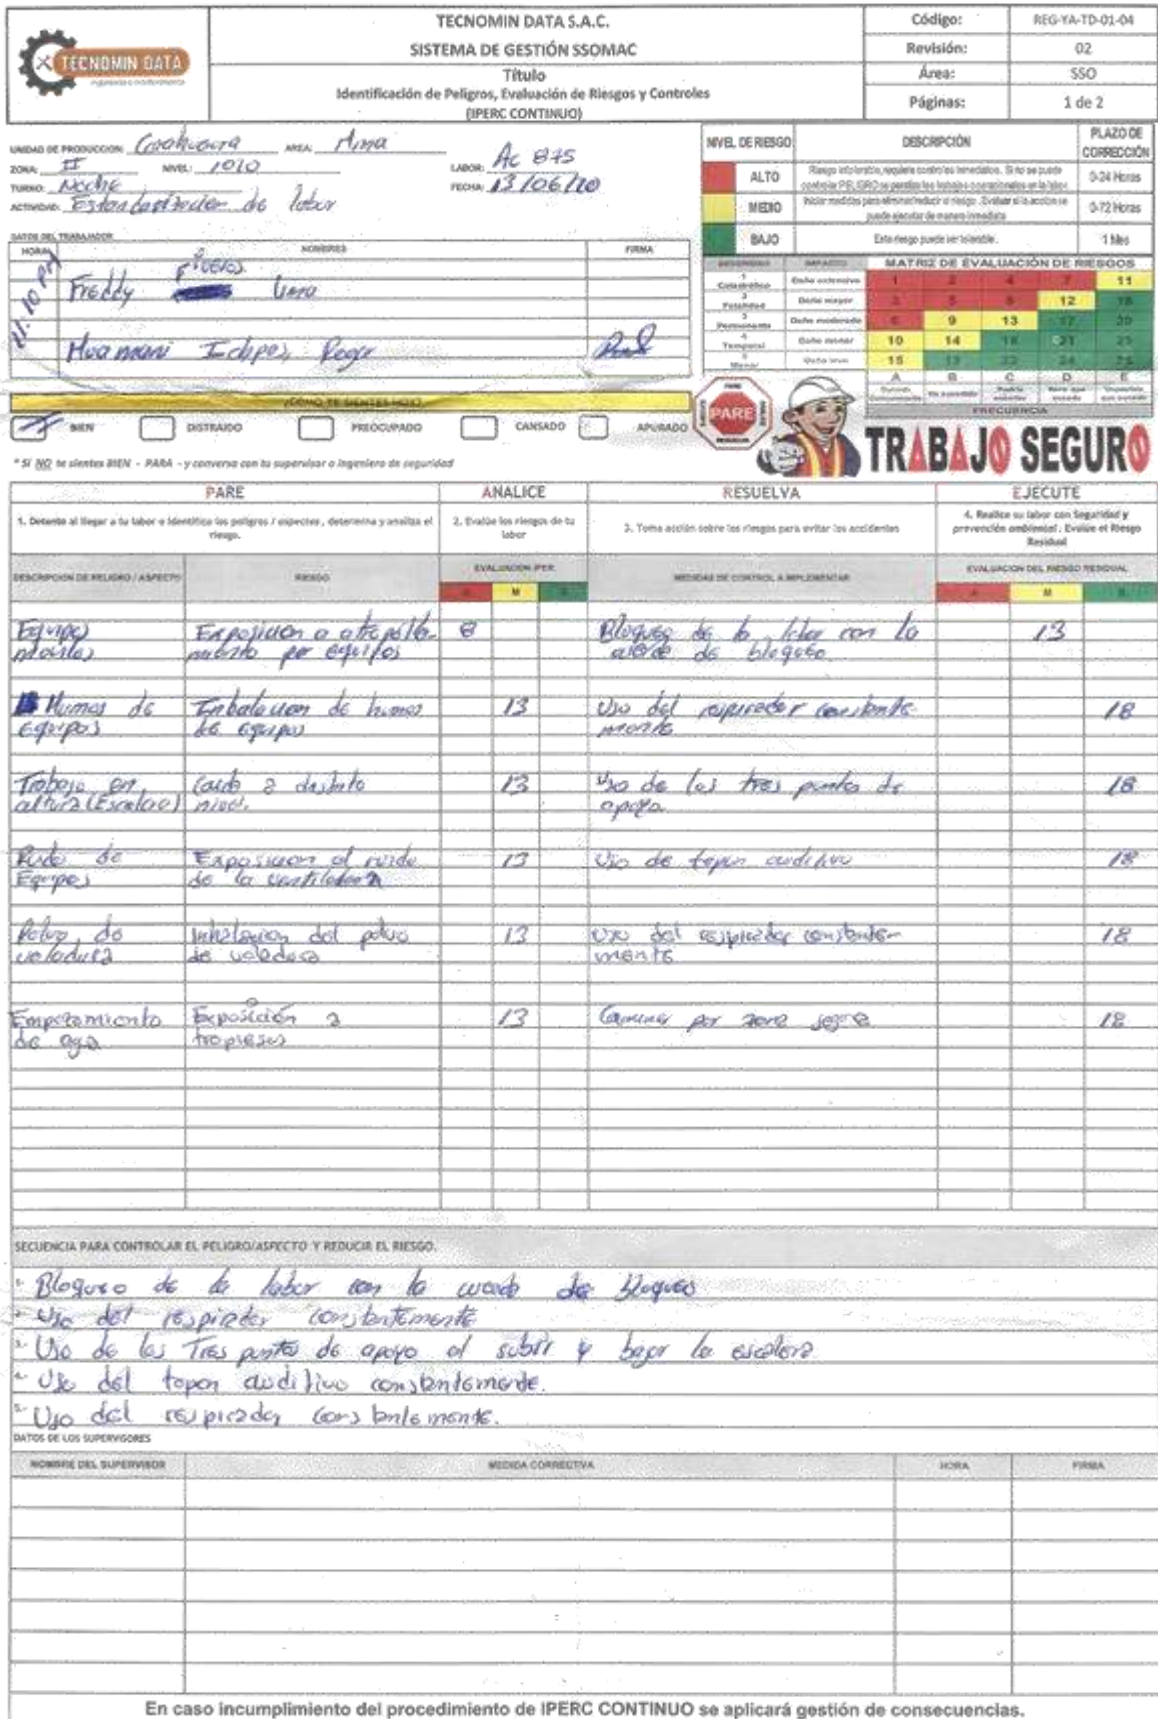 TECNOMIN DATA
TECNOMIN DATA S.A.C.
SISTEMA DE GESTIÓN SSOMAC
Título
Identificación de Peligros, Evaluación de Riesgos y Controles
(IPERC CONTINUO)
Código: REG-YA-TD-01-04
Revisión: 02
Área: SSO
Páginas: 1 de 2
UNIDAD DE PRODUCCION: AREA: Mina
ZONA: II NIVEL: 1010 LABOR: Ac 875
TURNO: Noche FECHA: 13/06/20
ACTIVIDAD: de labor
DATOS DEL TRABAJADOR
HORA NOMBRES FIRMA
11:10 PM
Freddy
Huamani Roger
NIVEL DE RIESGO DESCRIPCIÓN PLAZO DE CORRECCIÓN
ALTO Riesgo intolerable, requiere controles inmediatos. Si no se puede controlar PELIGRO se paralizan los trabajos operacionales en la labor. 0-24 Horas
MEDIO Iniciar medidas para eliminar/reducir el riesgo. Evaluar si la acción se puede ejecutar de manera inmediata 0-72 Horas
BAJO Este riesgo puede ser tolerable. 1 Mes
SEVERIDAD IMPACTO MATRIZ DE EVALUACIÓN DE RIESGOS
1 Catastrófico Daño extensivo 1 2 4 7 11
2 Fatalidad Daño mayor 3 5 8 12 16
3 Permanente Daño moderado 6 9 13 17 20
4 Temporal Daño menor 10 14 18 21 23
5 Menor Daño leve 15 19 22 24 25
A B C D E
FRECUENCIA
¿COMO TE SIENTES HOY?
BIEN DISTRAIDO PREOCUPADO CANSADO APURADO
* Si NO te sientes BIEN - PARA - y conversa con tu supervisor o ingeniero de seguridad
PARE
TRABAJO SEGURO
PARE ANALICE RESUELVA EJECUTE
1. Detente al llegar a tu labor e identifica los peligros / aspectos, determina y analiza el riesgo.
2. Evalúe los riesgos de tu labor
3. Toma acción sobre los riesgos para evitar los accidentes
4. Realice su labor con Seguridad y prevención ambiental. Evalúe el Riesgo Residual
DESCRIPCION DE PELIGRO / ASPECTO RIESGO EVALUACION IPER MEDIDAS DE CONTROL A IMPLEMENTAR EVALUACION DEL RIESGO RESIDUAL
A M B A M B
Equipos Exposicion a 8 Bloqueo de la labor con la 13
moviles por equipos de bloqueo
Humos de de humos 13 Uso del respirador constante 18
equipos de equipos mente
Trabajo en Caida a distinto 13 Uso de los tres puntos de 18
altura nivel. apoyo
Ruido de Exposicion al ruido 13 Uso de tapon auditivo 18
Equipos de la ventiladora
Polvo de Inhalacion del polvo 13 Uso del respirador constante 18
voladura de voladura mente
Exposición a 13 Caminar por zona segura 18
de agua tropiesos
SECUENCIA PARA CONTROLAR EL PELIGRO/ASPECTO Y REDUCIR EL RIESGO.
1- Bloqueo de la labor con la de bloqueo
2- Uso del respirador constantemente
3- Uso de los Tres puntos de apoyo al subir y bajar la escalera
4- Uso del tapon auditivo constantemente.
5- Uso del respirador constantemente.
DATOS DE LOS SUPERVISORES
NOMBRE DEL SUPERVISOR MEDIDA CORRECTIVA HORA FIRMA
En caso incumplimiento del procedimiento de IPERC CONTINUO se aplicará gestión de consecuencias.